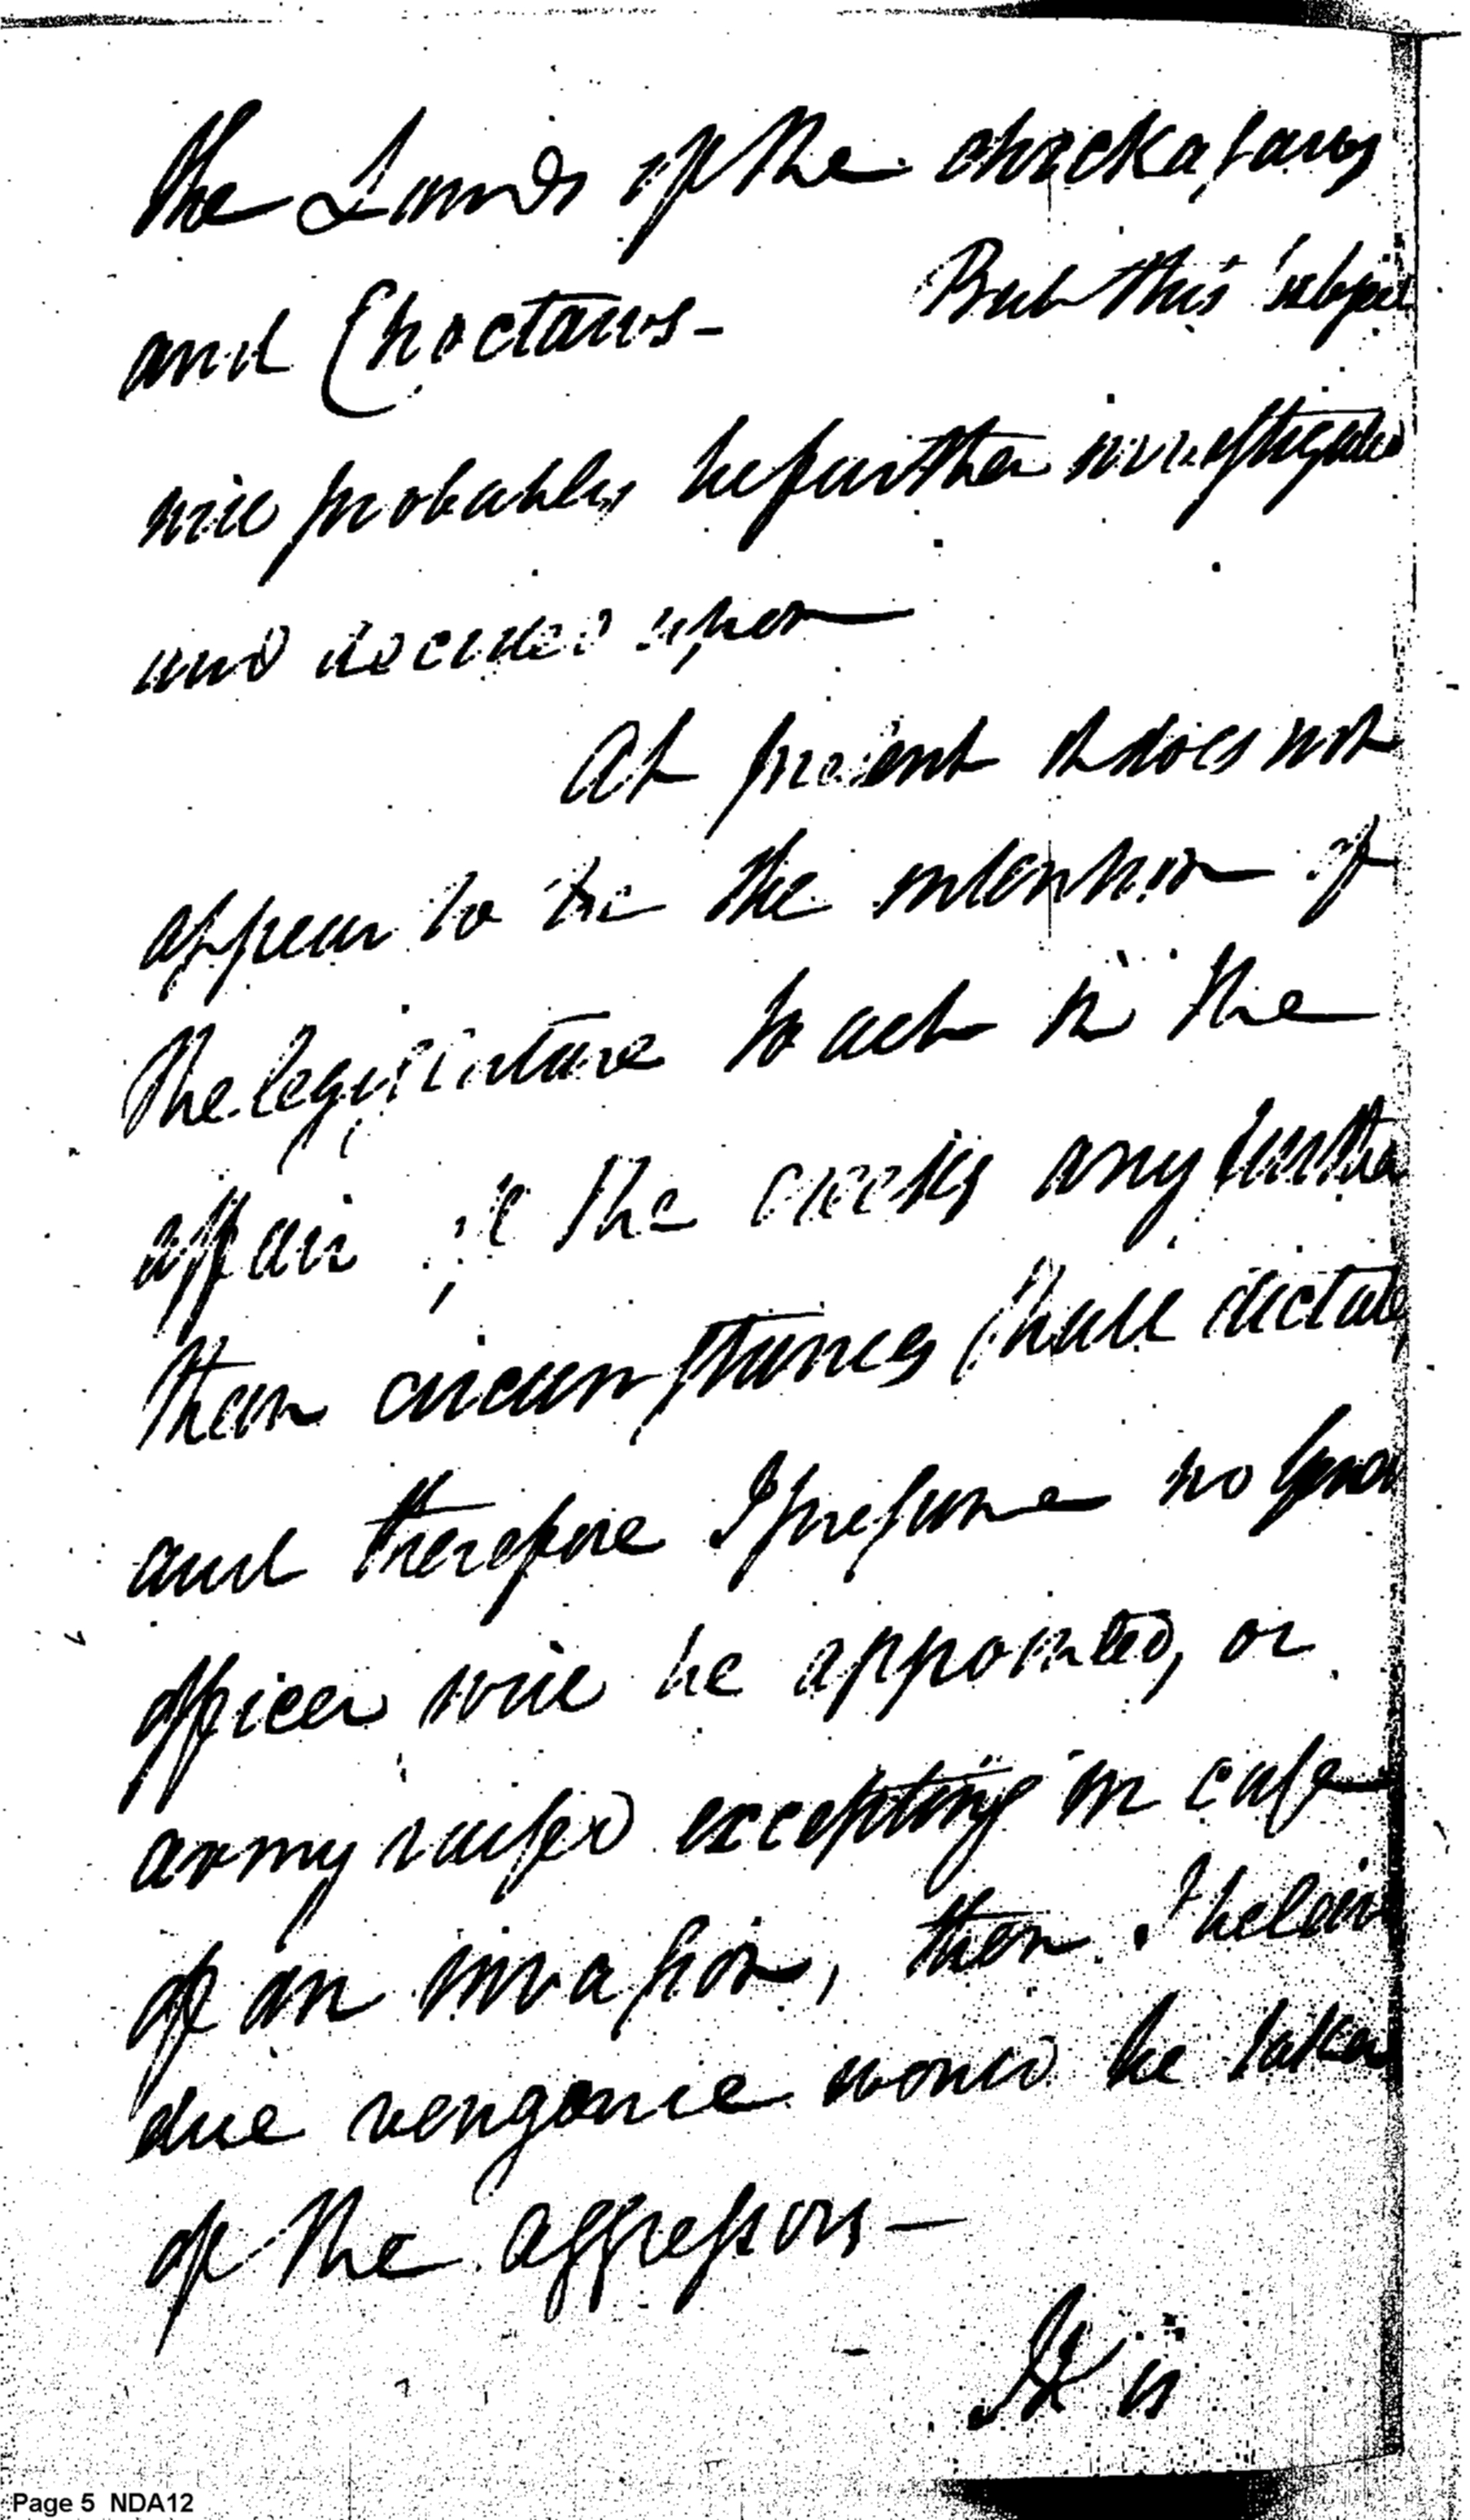 the Lands of the chickasaws
and Choctaws— But this subject
will probably be further investigated
and decided upon—
At present it does not
appear to be the intention of
the legislature to act in the
affair of the creeks any further
than circumstances shall dictate
and therefore I presume no
officer will be appointed, or
army raised excepting in case
of an invasion, then I beleive
due vengance would be taken
of the aggressors—
It is
Page 5 NDA12